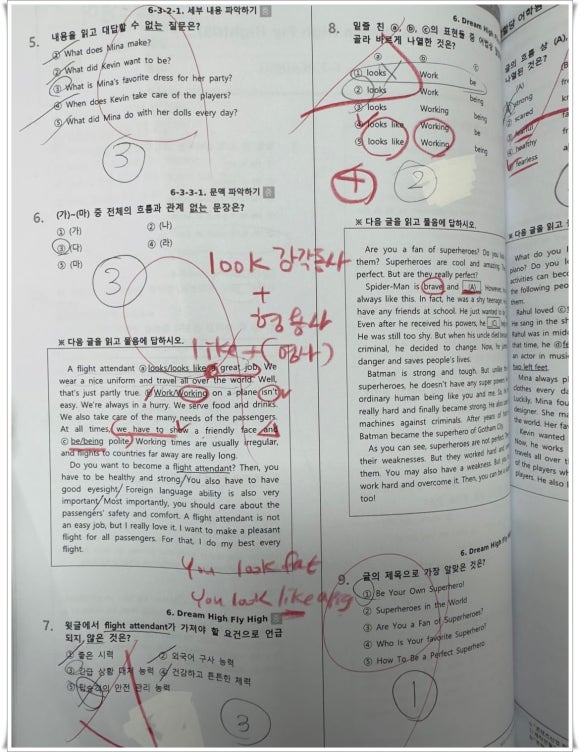 6-3-2-1. 세부 내용 파악하기
5. 내용을 읽고 대답할 수 없는 질문은?
① What does Mina make?
② What did Kevin want to be?
③ What is Mina's favorite dress for her party?
④ When does Kevin take care of the players?
⑤ What did Mina do with her dolls every day?
③
6-3-3-1. 문맥 파악하기
6. (가)~(마) 중 전체의 흐름과 관계 없는 문장은?
① (가) ② (나)
③ (다) ④ (라)
⑤ (마)
③
look 감각동사
+
형용사
like + (명사)
※ 다음 글을 읽고 물음에 답하시오.
A flight attendant ⓐ looks/looks like a great job. We
wear a nice uniform and travel all over the world. Well,
that's just partly true. ⓑ Work/Working on a plane isn't
easy. We're always in a hurry. We serve food and drinks.
We also take care of the many needs of the passengers.
At all times, we have to show a friendly face and
ⓒ be/being polite. Working times are usually irregular,
and flights to countries far away are really long.
Do you want to become a flight attendant? Then, you
have to be healthy and strong. You also have to have
good eyesight. Foreign language ability is also very
important. Most importantly, you should care about the
passengers' safety and comfort. A flight attendant is not
an easy job, but I really love it. I want to make a pleasant
flight for all passengers. For that, I do my best every
flight.
You look fat
You look like a pig
6. Dream High Fly High
7. 윗글에서 flight attendant가 가져야 할 요건으로 언급
되지 않은 것은?
① 좋은 시력 ② 외국어 구사 능력
③ 긴급 상황 대처 능력 ④ 건강하고 튼튼한 체력
⑤ 탑승객의 안전 관리 능력
③
6. Dream High Fly High
8. 밑줄 친 ⓐ, ⓑ, ⓒ의 표현들 중 어법상
골라 바르게 나열한 것은?
ⓐ ⓑ ⓒ
① looks Work be
② looks Work being
③ looks Working being
④ looks like Working be
⑤ looks like Working being
④
②
※ 다음 글을 읽고 물음에 답하시오.
Are you a fan of superheroes? Do you
them? Superheroes are cool and amazing.
perfect. But are they really perfect?
Spider-Man is brave and (A). However,
always like this. In fact, he was a shy teenager
have any friends at school. He just wanted
Even after he received his powers, he (C)
He was still too shy. But when his uncle died
criminal, he decided to change. Now, he
danger and saves people's lives.
Batman is strong and tough. But unlike
superheroes, he doesn't have any super powers.
ordinary human being like you and me. So,
really hard and finally became strong. He also
machines against criminals. After years of
Batman became the superhero of Gotham City.
As you can see, superheroes are not perfect.
their weaknesses. But they worked hard and
them. You may also have a weakness. But you
work hard and overcome it. Then, you can be a
too!
6. Dream High
9. 글의 제목으로 가장 알맞은 것은?
① Be Your Own Superhero!
② Superheroes in the World
③ Are You a Fan of Superheroes?
④ Who Is Your Favorite Superhero?
⑤ How To Be a Perfect Superhero
①
글의 흐름 상 (A),
나열된 것은?
(A)
① strong
② scared
③ fearful
④ healthy
⑤ fearless
※ 다음 글을 읽고
What do you
piano? Do you
activities can become
the following people
them.
Rahul loved
He sang in the
Rahul was in middle
that time, he
an actor in music
two left feet.
Mina always
clothes every
luckily, Mina found
designer. She
the world. Her
Kevin wanted
Now, he works
travels all over
of the players
players. He also